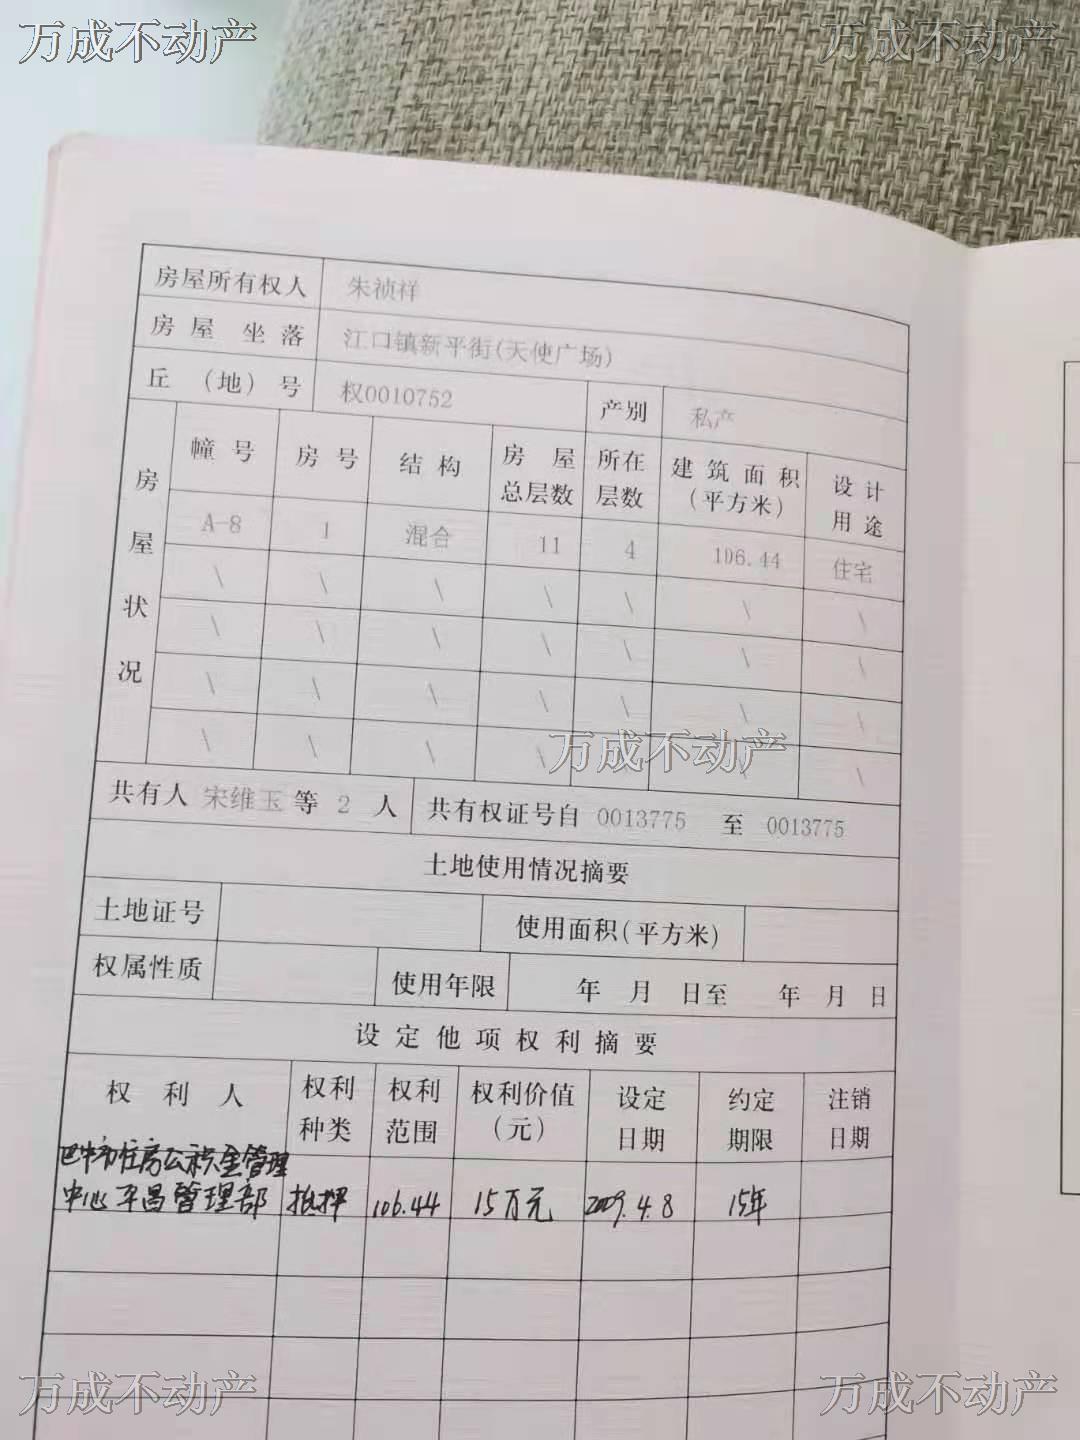 万成不动产 万成不动产
房屋所有权人 朱祯祥
房屋坐落 江口镇新平街(天使广场)
丘(地)号 权0010752 产别 私产
房屋状况 幢号 房号 结构 房屋总层数 所在层数 建筑面积(平方米) 设计用途
A-8 1 混合 11 4 106.44 住宅
\ \ \ \ \ \ \
\ \ \ \ \ \ \
\ \ \ \ \ \ \
\ \ \ \ \ \ \
万成不动产
共有人 宋维玉 等 2 人 共有权证号自 0013775 至 0013775
土地使用情况摘要
土地证号 使用面积(平方米)
权属性质 使用年限 年 月 日至 年 月 日
设定他项权利摘要
权利人 权利种类 权利范围 权利价值(元) 设定日期 约定期限 注销日期
巴中市住房公积金管理
中心平昌管理部 抵押 106.44 15万元 2009.4.8 15年
万成不动产 万成不动产